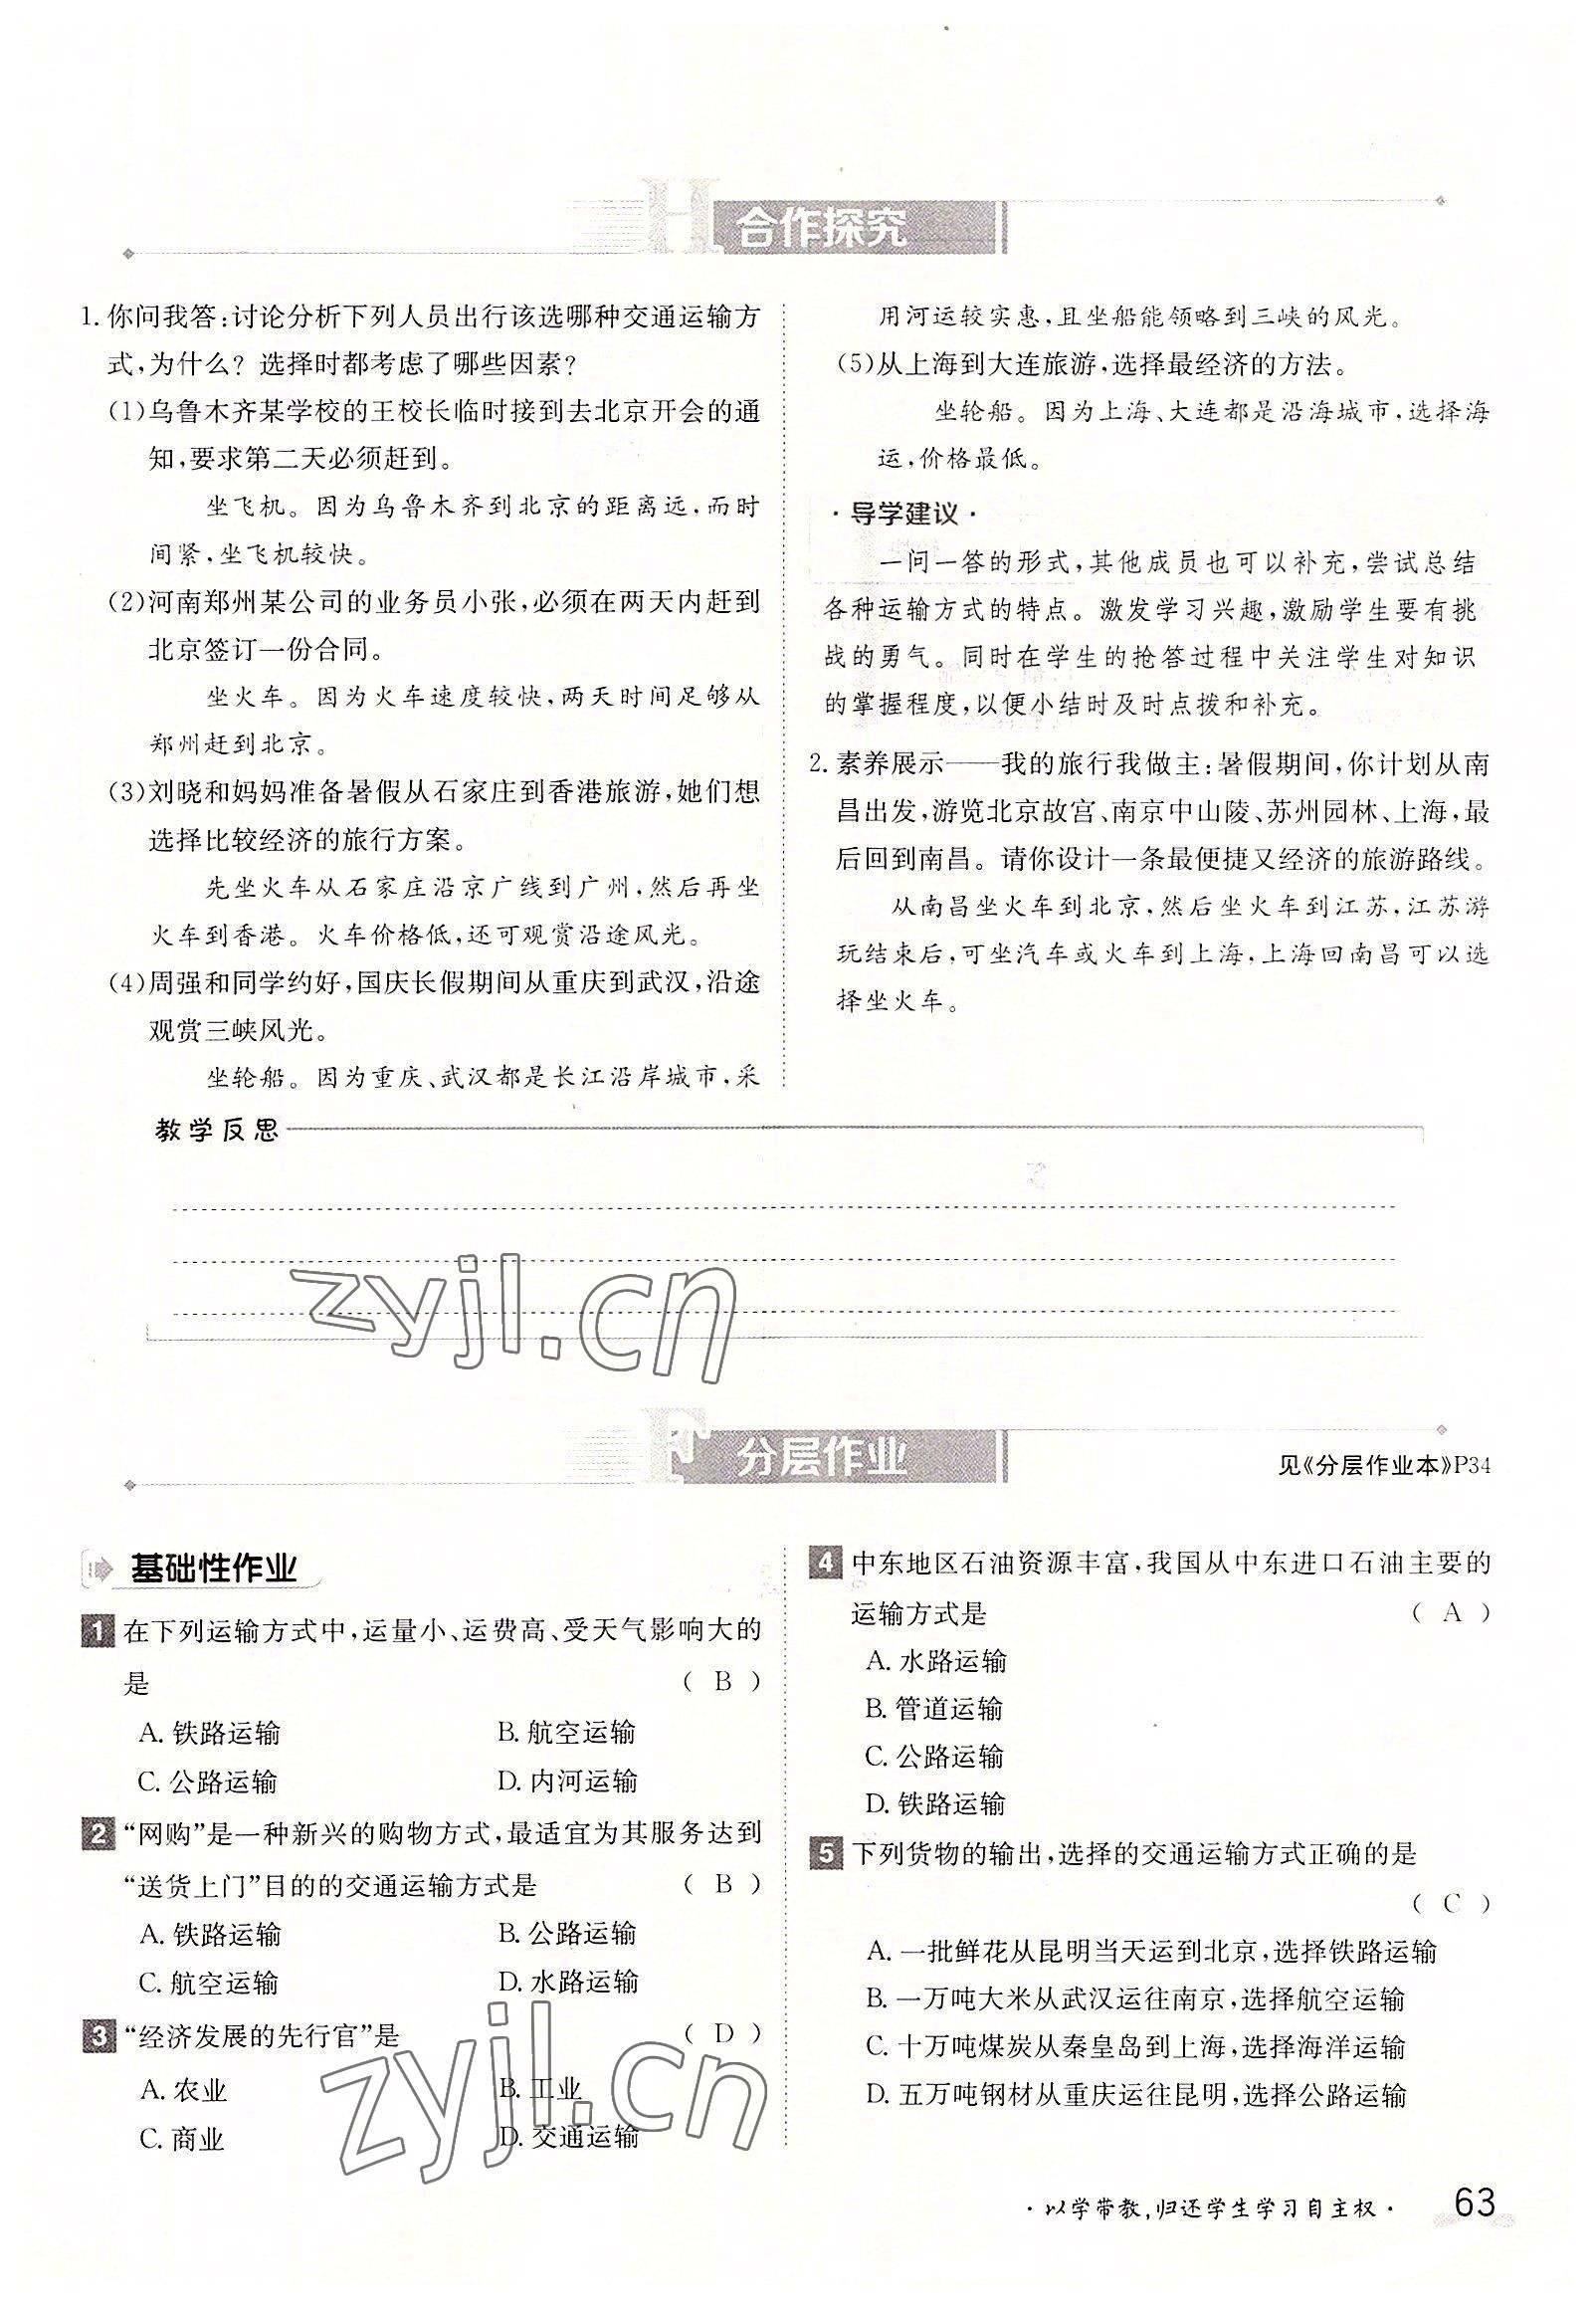 合作探究
1. 你问我答:讨论分析下列人员出行该选哪种交通运输方
式,为什么? 选择时都考虑了哪些因素?
(1)乌鲁木齐某学校的王校长临时接到去北京开会的通
知,要求第二天必须赶到。
坐飞机。因为乌鲁木齐到北京的距离远,而时
间紧,坐飞机较快。
(2)河南郑州某公司的业务员小张,必须在两天内赶到
北京签订一份合同。
坐火车。因为火车速度较快,两天时间足够从
郑州赶到北京。
(3)刘晓和妈妈准备暑假从石家庄到香港旅游,她们想
选择比较经济的旅行方案。
先坐火车从石家庄沿京广线到广州,然后再坐
火车到香港。火车价格低,还可观赏沿途风光。
(4)周强和同学约好,国庆长假期间从重庆到武汉,沿途
观赏三峡风光。
坐轮船。因为重庆、武汉都是长江沿岸城市,采
用河运较实惠,且坐船能领略到三峡的风光。
(5)从上海到大连旅游,选择最经济的方法。
坐轮船。因为上海、大连都是沿海城市,选择海
运,价格最低。
·导学建议·
一问一答的形式,其他成员也可以补充,尝试总结
各种运输方式的特点。激发学习兴趣,激励学生要有挑
战的勇气。同时在学生的抢答过程中关注学生对知识
的掌握程度,以便小结时及时点拨和补充。
2. 素养展示——我的旅行我做主:暑假期间,你计划从南
昌出发,游览北京故宫、南京中山陵、苏州园林、上海,最
后回到南昌。请你设计一条最便捷又经济的旅游路线。
从南昌坐火车到北京,然后坐火车到江苏,江苏游
玩结束后,可坐汽车或火车到上海,上海回南昌可以选
择坐火车。
教学反思
zyjl.cn
分层作业
见《分层作业本》P34
基础性作业
1 在下列运输方式中,运量小、运费高、受天气影响大的
是 ( B )
A. 铁路运输 B. 航空运输
C. 公路运输 D. 内河运输
2 “网购”是一种新兴的购物方式,最适宜为其服务达到
“送货上门”目的的交通运输方式是 ( B )
A. 铁路运输 B. 公路运输
C. 航空运输 D. 水路运输
3 “经济发展的先行官”是 ( D )
A. 农业 B. 工业
C. 商业 D. 交通运输
zyjl.cn
4 中东地区石油资源丰富,我国从中东进口石油主要的
运输方式是 ( A )
A. 水路运输
B. 管道运输
C. 公路运输
D. 铁路运输
5 下列货物的输出,选择的交通运输方式正确的是
( C )
A. 一批鲜花从昆明当天运到北京,选择铁路运输
B. 一万吨大米从武汉运往南京,选择航空运输
C. 十万吨煤炭从秦皇岛到上海,选择海洋运输
D. 五万吨钢材从重庆运往昆明,选择公路运输
·以学带教,归还学生学习自主权· 63